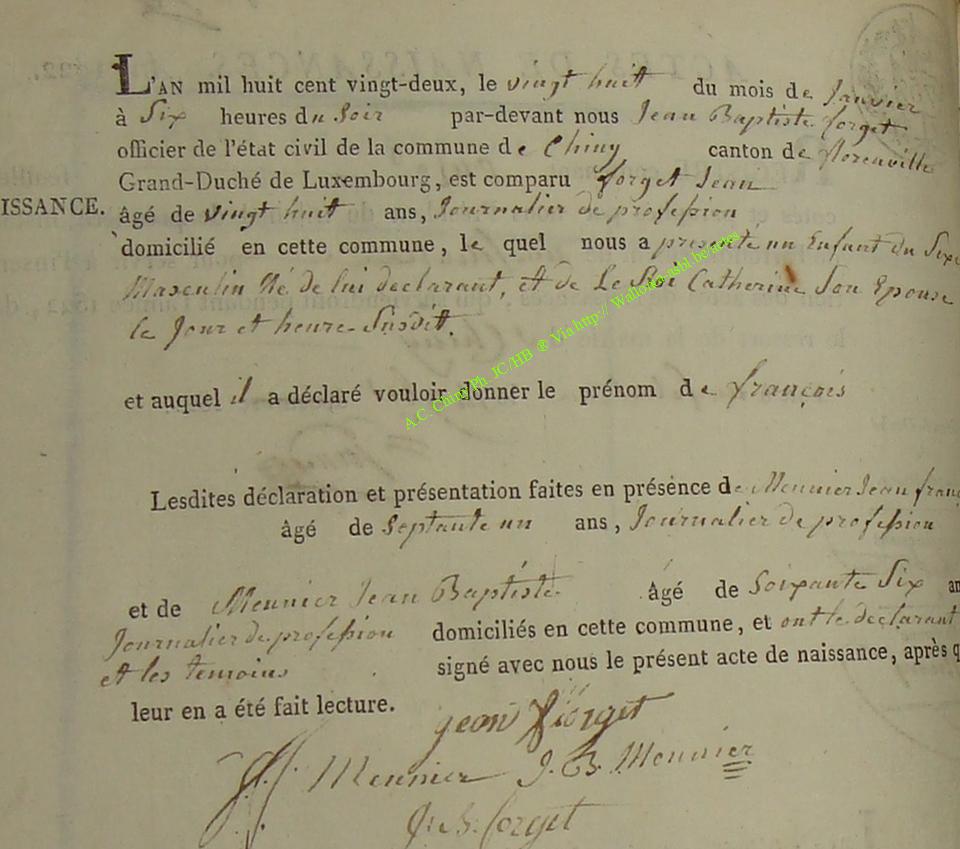 L'AN mil huit cent vingt-deux, le vingt huit du mois de Janvier
à Six heures du Soir par-devant nous Jean Baptiste forget
officier de l'état civil de la commune de Chiny canton de florenville
Grand-Duché de Luxembourg, est comparu forget Jean
ISSANCE. âgé de vingt huit ans, Journalier de profession
domicilié en cette commune, le quel nous a presenté un Enfant du Sixe
Masculin Né de lui declarant, et de Le Roi Catherine Son Epouse
le Jour et heure Susdit.
et auquel il a déclaré vouloir donner le prénom de françois
A.C. Chiny/Ph. JC/HB ® Via http:// Wallonia-asbl.be/actes
Lesdites déclaration et présentation faites en présence de Meunier Jean franç
âgé de Septante un ans, Journalier de profession
et de Meunier Jean Baptiste âgé de Soixante Six an
Journalier de profession domiciliés en cette commune, et ont le declarant
et les temoins signé avec nous le présent acte de naissance, après q
leur en a été fait lecture.
jean forget
J. f. Meunier J. B. Meunier
J. B. forget